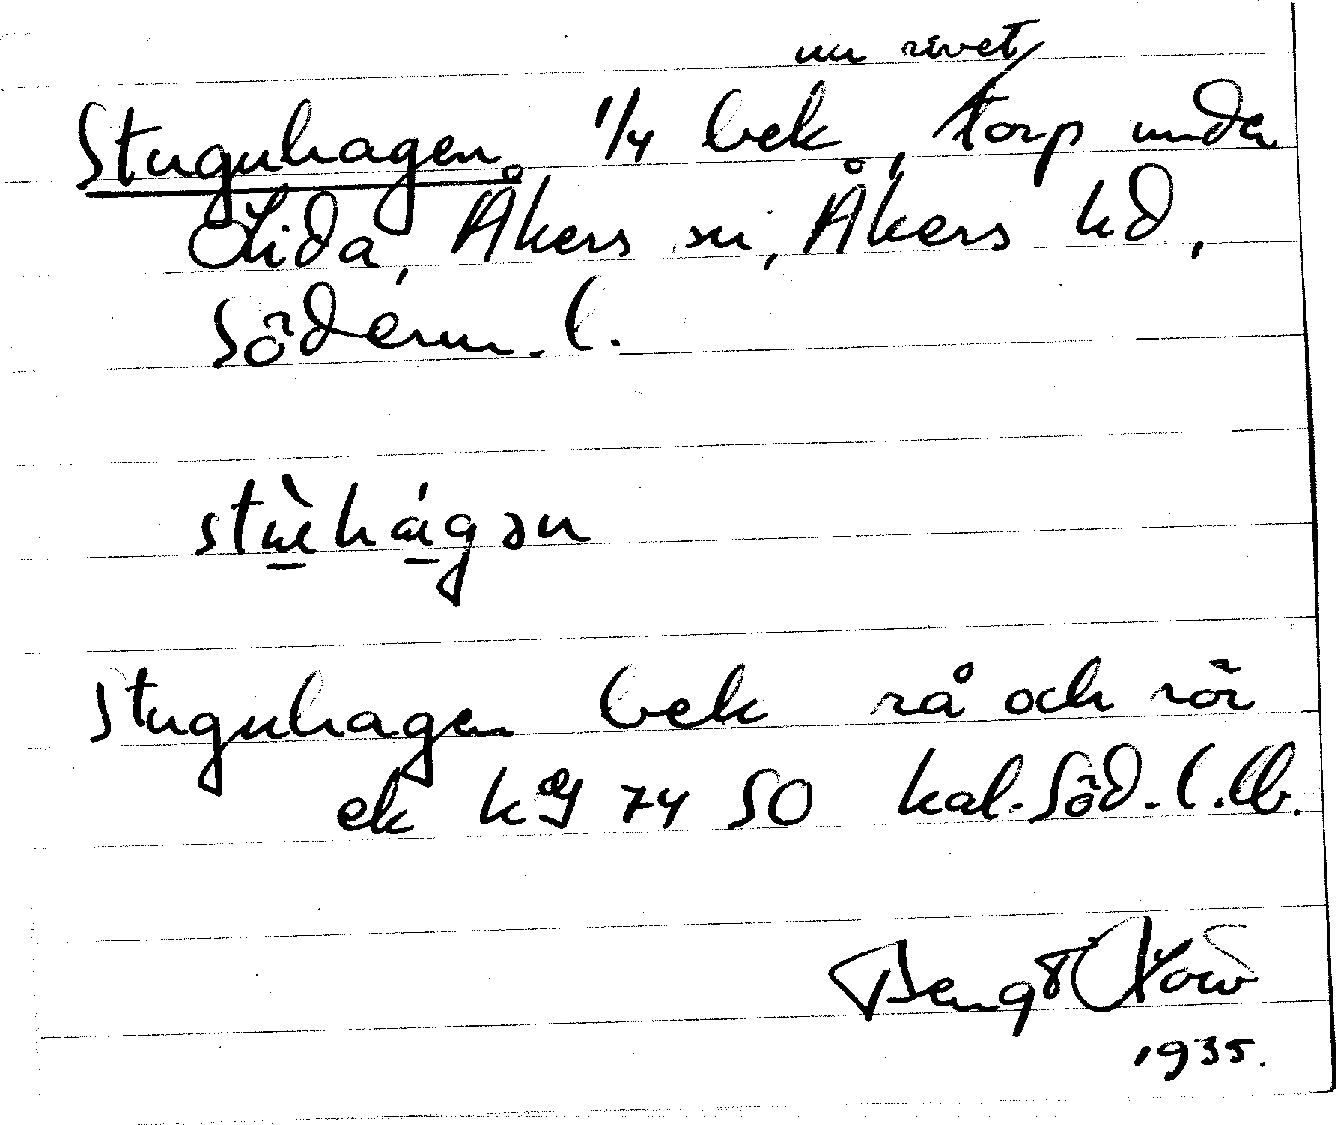 nu rivet
Stuguhagen, 1/4 bek, torp under
Lida, Åkers sn, Åkers hd,
Söderm. l.
stɯ̀hágən
Stuguhagen bek rå och rör
ek kg 74 50 kal. Söd. l. lb.
Bengt
1935.